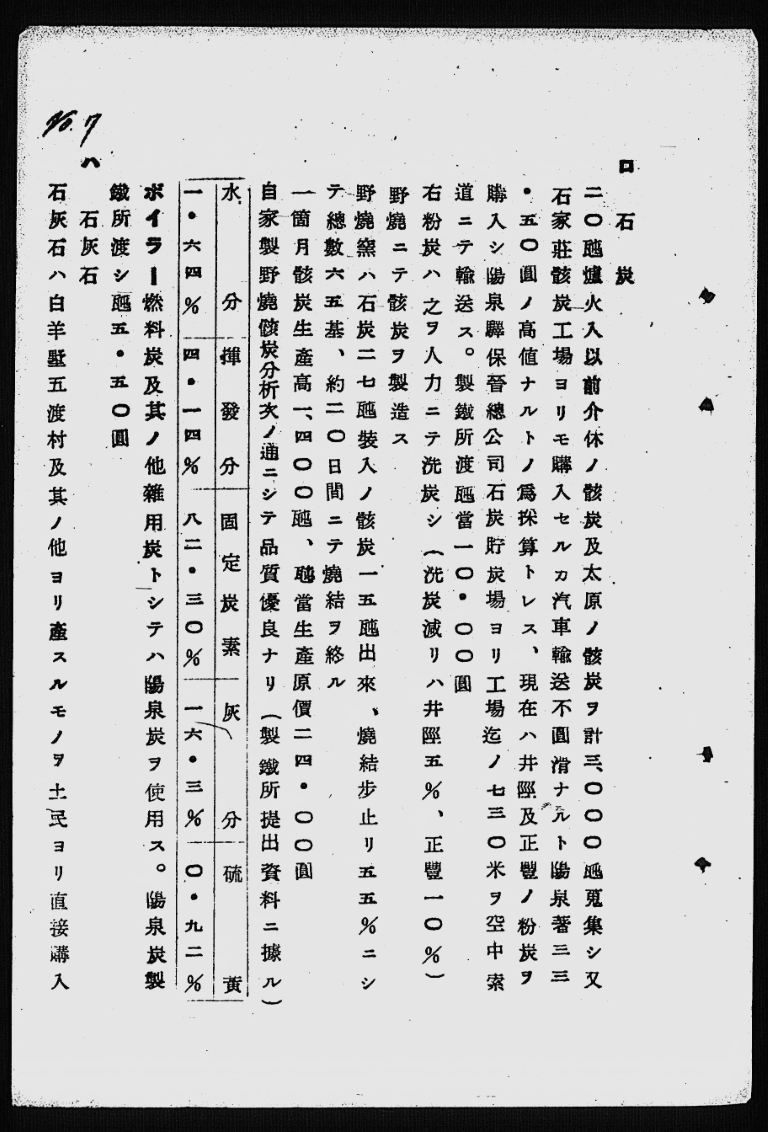 No. 7
ロ 石炭
二〇瓲爐火入以前介休ノ骸炭及太原ノ骸炭ヲ計三、〇〇〇瓲蒐集シ又
石家莊骸炭工場ヨリモ購入セルカ汽車輸送不圓滑ナルト陽泉著三三
・五〇圓ノ高値ナルトノ爲採算トレス、現在ハ井陘及正豐ノ粉炭ヲ
購入シ陽泉驛保晉總公司石炭貯炭場ヨリ工場迄ノ七三〇米ヲ空中索
道ニテ輸送ス。製鐵所渡瓲當一〇・〇〇圓
右粉炭ハ之ヲ人力ニテ洗炭シ(洗炭減リハ井陘五%、正豐一〇%)
野燒ニテ骸炭ヲ製造ス
野燒窯ハ石炭二七瓲裝入ノ骸炭一五瓲出來、燒結步止リ五五%ニシ
テ總數六五基、約二〇日間ニテ燒結ヲ終ル
一箇月骸炭生產高一、四〇〇瓲、瓲當生產原價二四・〇〇圓
自家製野燒骸炭分析次ノ通ニシテ品質優良ナリ(製鐵所提出資料ニ據ル)
水分 揮發分 固定炭素 灰分 硫黃
一・六四% 四・一四% 八二・三〇% 一六・三% 〇・九二%
ボイラー燃料炭及其ノ他雜用炭トシテハ陽泉炭ヲ使用ス。陽泉炭製
鐵所渡シ瓲五・五〇圓
ハ 石灰石
石灰石ハ白羊墅五渡村及其ノ他ヨリ產スルモノヲ土民ヨリ直接購入